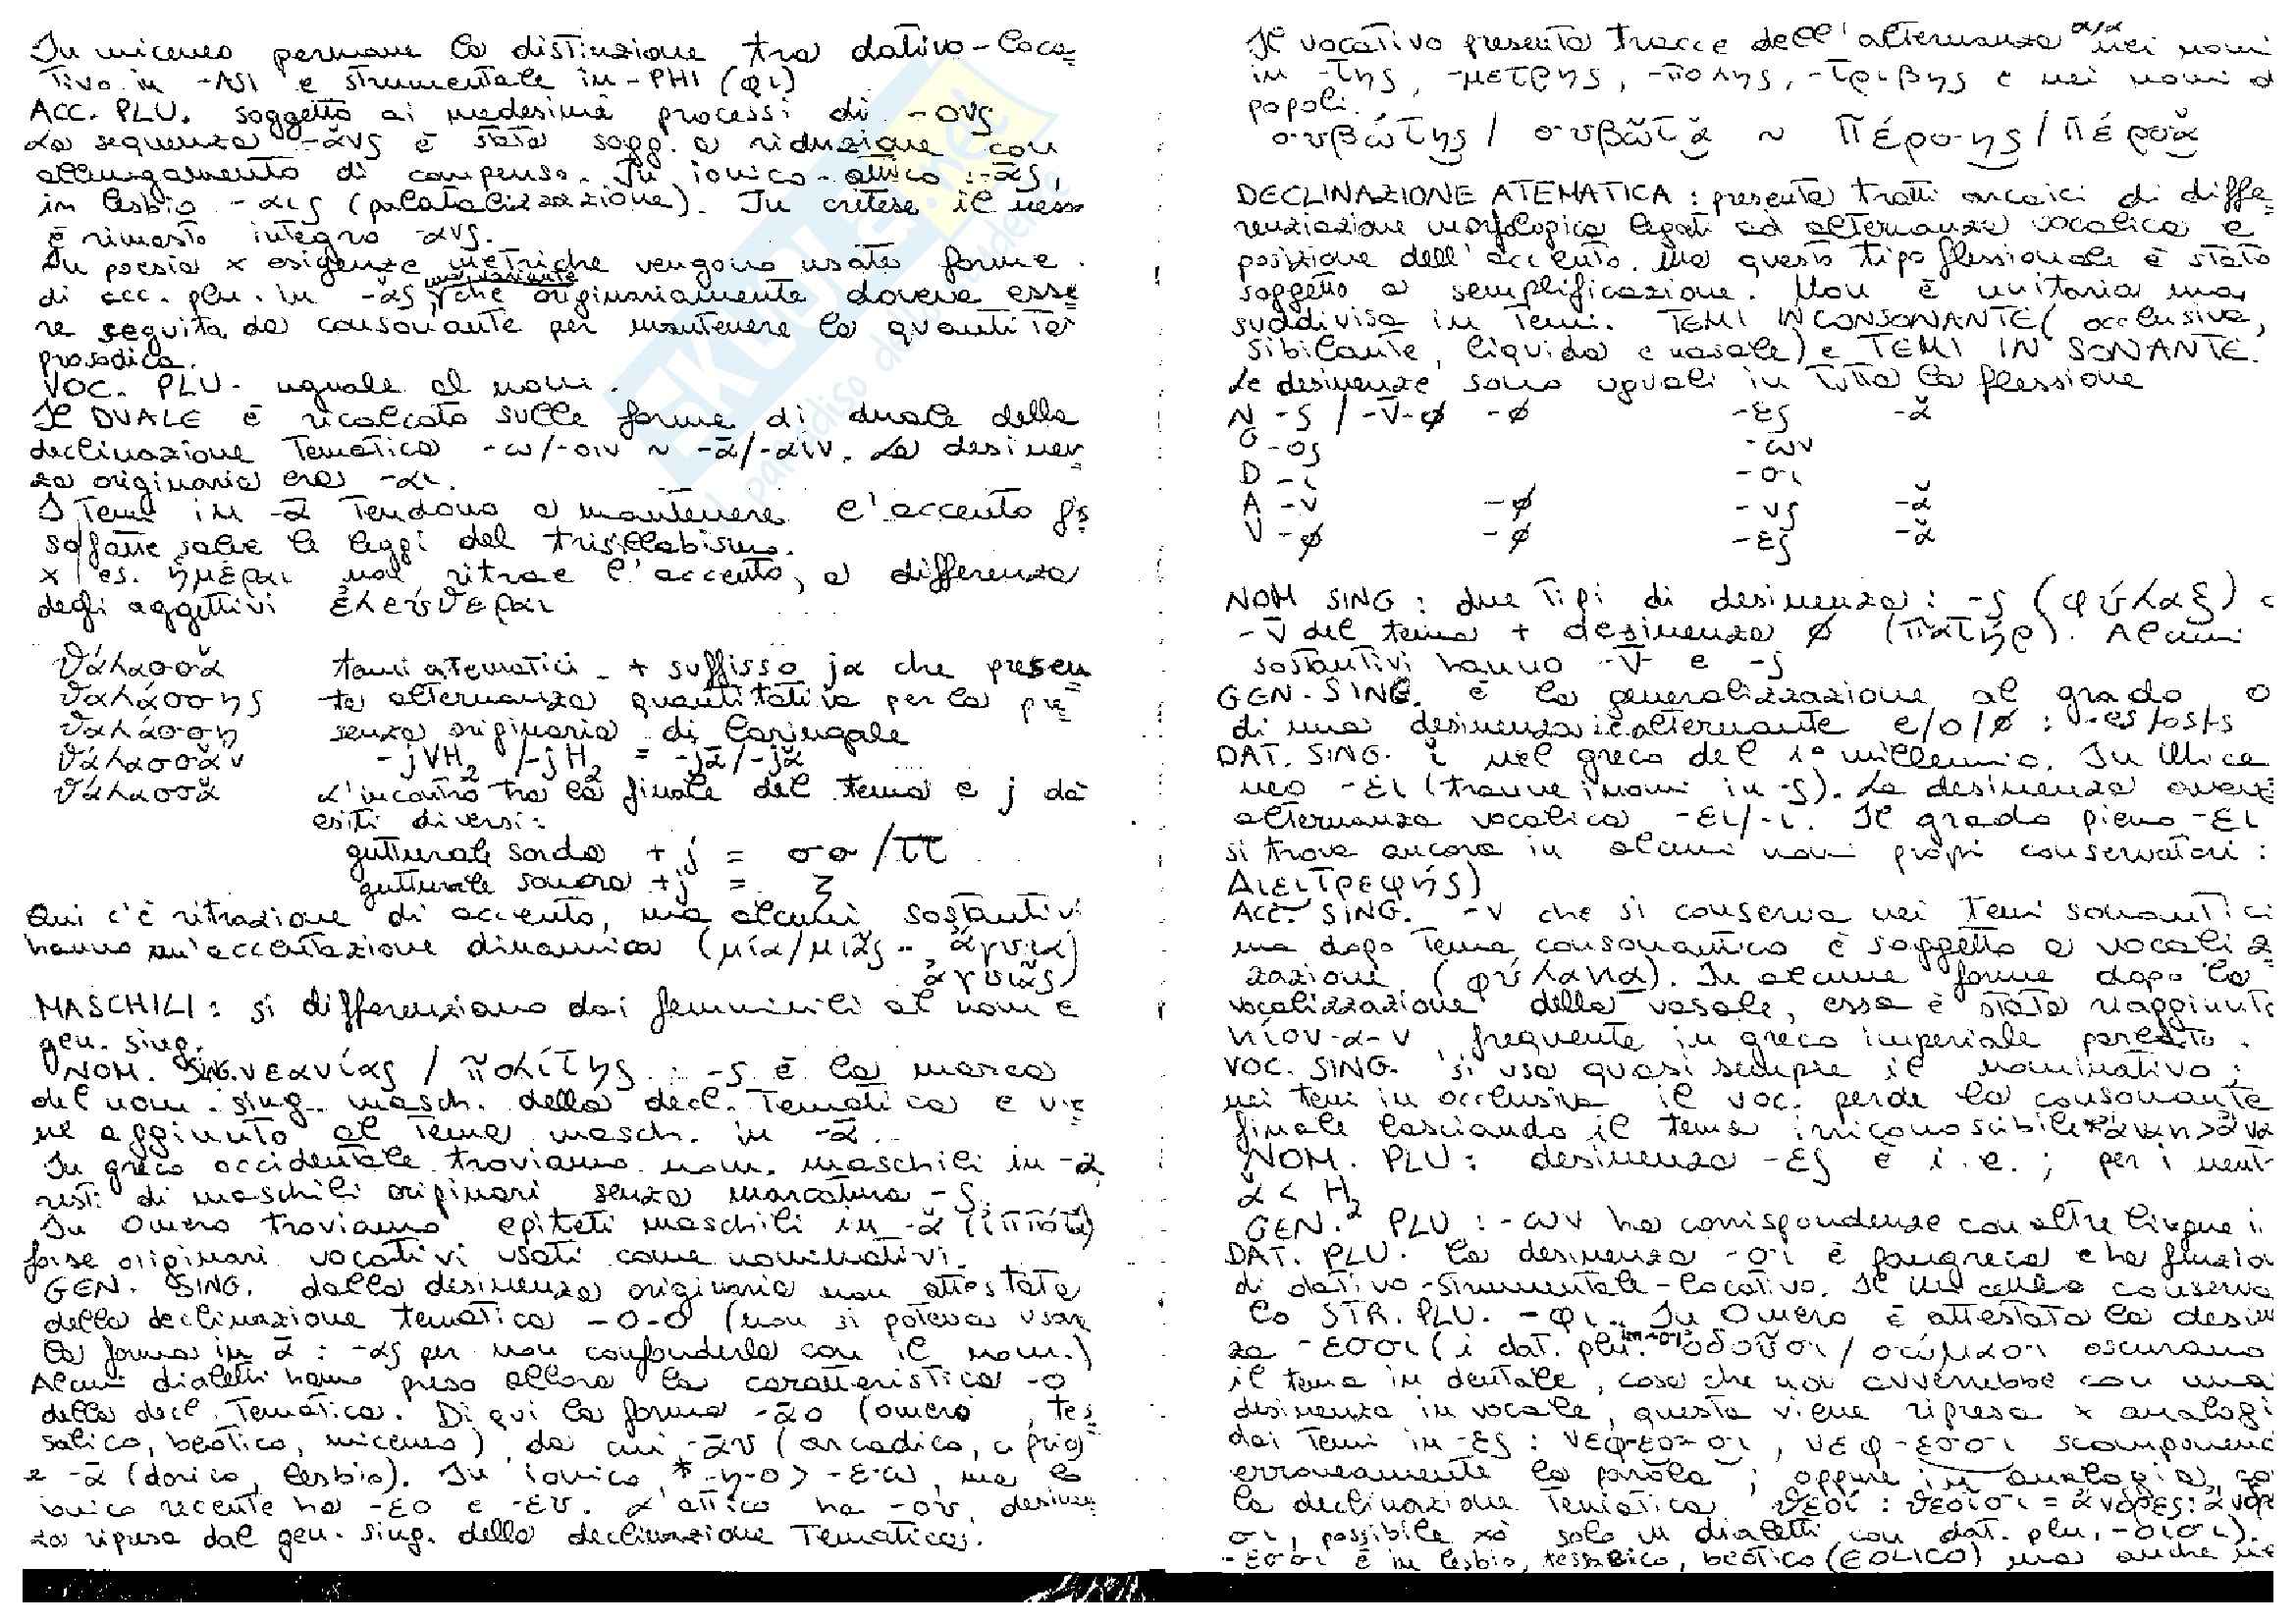 In miceneo permane la distinzione tra dativo-loca=
tivo in -ASI e strumentale in -PHI (φι)
ACC. PLU. soggetto ai medesimi processi di -ονς
La sequenza -ᾰνς è stata sogg. a riduzione con
allungamento di compenso. In ionico-attico : -ᾱς,
in lesbio -αις (palatalizzazione). In cretese il ness
è rimasto integro -ανς.
In poesia x esigenze metriche vengono usate forme
di acc. plu. in -ᾰς, che originariamente doveva esse=
re seguita da consonante per mantenere la quantità
prosodica.
VOC. PLU. uguale al nom.
Il DUALE è ricalcato sulle forme di duale della
declinazione tematica -ω/-οιν ~ -ᾱ/-αιν. La desinen=
za originaria era -αι.
I temi in -ᾱ tendono a mantenere l'accento fis=
so fatte salve le leggi del trisillabismo.
x es. ἡμέραι non ritrae l'accento, a differenza
degli aggettivi ἐλεύθεραι
θάλασσᾰ temi atematici + suffisso ja che presen=
θαλάσσης ta alternanza quantitativa per la pre=
θαλάσσῃ senza originaria di laringale
θάλασσᾰν -jVH₂ /-jH₂ = -jᾱ/-jᾰ
θάλασσᾰ L'incontro tra la finale del tema e j dà
esiti diversi:
gutturale sorda + j = σσ/ττ
gutturale sonora + j = ζ
Qui c'è ritrazione di accento, ma alcuni sostantivi
hanno un'accentazione dinamica (μία/μιᾶς - ἄγυια
ἀγυιᾶς)
MASCHILI: si differenziano dai femminili al nom e
gen. sing.
NOM. SING. νεανίας / πολίτης : -ς è la marca
del nom. sing. masch. della decl. tematica e vie=
ne aggiunto al tema masch. in -ᾱ.
In greco occidentale troviamo nom. maschili in -ᾱ,
resti di maschili originari senza marcatura -ς.
In Omero troviamo epiteti maschili in -ᾰ (ἱππότᾰ)
forse originari vocativi usati come nominativi.
GEN. SING. dalla desinenza originaria non attestata
della declinazione tematica -ο-ο (non si poteva usare
la forma in ᾱ : -ᾱς per non confonderla con il nom.)
Alcuni dialetti hanno preso allora la caratteristica -ο
della decl. tematica. Di qui la forma -ᾱο (omero, tes=
salico, beotico, miceneo) da cui -ᾱυ (arcadico, ciprio)
e -ᾱ (dorico, lesbio). In ionico *-η-ο > -ε-ω, ma lo
ionico recente ha -εο e -ευ. L'attico ha -ου, desinen=
za ripresa dal gen. sing. della declinazione tematica.
Il vocativo presenta tracce dell'alternanza ᾱ/ᾰ nei nomi
in -της, -μετρης, -πολης, -τριβης e nei nomi d
popoli.
συβώτης / συβῶτᾰ ~ Πέρσης / Πέρσᾰ
DECLINAZIONE ATEMATICA : presenta tratti arcaici di diffe=
renziazione morfologica legati ad alternanza vocalica e
posizione dell'accento. Ma questo tipo flessionale è stato
soggetto a semplificazione. Non è unitaria ma
suddivisa in temi. TEMI IN CONSONANTE (occlusiva,
sibilante, liquida e nasale) e TEMI IN SONANTE.
Le desinenze sono uguali in tutta la flessione
N -ς / -V̄-∅ -∅ -ες -ᾰ
G -ος -ων
D -ι -σι
A -ν -∅ -νς -ᾰ
V -∅ -∅ -ες -ᾰ
NOM SING : due tipi di desinenza : -ς (φύλαξ) e
-V̄ del tema + desinenza ∅ (πατήρ). Alcuni
sostantivi hanno -V̄ e -ς
GEN. SING. è la generalizzazione al grado o
di una desinenza i.e. alternante e/o/∅ : -es/os/-s
DAT. SING. ῐ nel greco del 1° millennio. In Mice
neo -ει (tranne i nomi in -ς). La desinenza aveva
alternanza vocalica -ει/-ι. Il grado pieno -ει
si trova ancora in alcuni nomi propri conservatori :
Διειτρεφής)
ACC. SING. -ν che si conserva nei temi sonantici
ma dopo tema consonantico è soggetto a vocaliz
zazione (φύλακα). In alcune forme dopo la
vocalizzazione della nasale, essa è stata riaggiunta
κίον-α-ν, frequente in greco imperiale parlato.
VOC. SING. si usa quasi sempre il nominativo;
nei temi in occlusiva il voc. perde la consonante
finale lasciando il tema irriconoscibile
NOM. PLU : desinenza -ες è i.e. ; per i neut
ᾰ < H₂
GEN. PLU : -ων ha corrispondenze con altre lingue i.
DAT. PLU. la desinenza -σι è pangreca e ha funzion
di dativo-strumentale-locativo. Il miceneo conserva
lo STR. PLU. -φι. In Omero è attestata la desin
za -εσσι (i dat. plu. in -σι ὀδοῦσι / σώμασι oscurano
il tema in dentale, cosa che non avverrebbe con una
desinenza in vocale, questa viene ripresa x analogi
dai temi in -ες : νεφεσ-σι, νεφ-εσσι scomponend
erroneamente la parola ; oppure in analogia co
la declinazione tematica θεοί : θεοῖσι = ἄνδρες : ἄνδρ
σι, possibile xò solo in dialetti con dat. plu. -οισι).
-εσσι è in lesbio, tessalico, beotico (EOLICO) ma anche ne